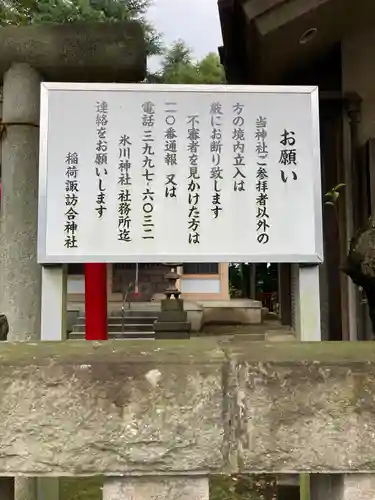 お願い
当神社ご参拝者以外の
方の境内立入は
厳にお断り致します
不審者を見かけた方は
一一〇番通報　又は
電話三九九七-六〇三二
氷川神社　社務所迄
連絡をお願いします
稲荷諏訪合神社